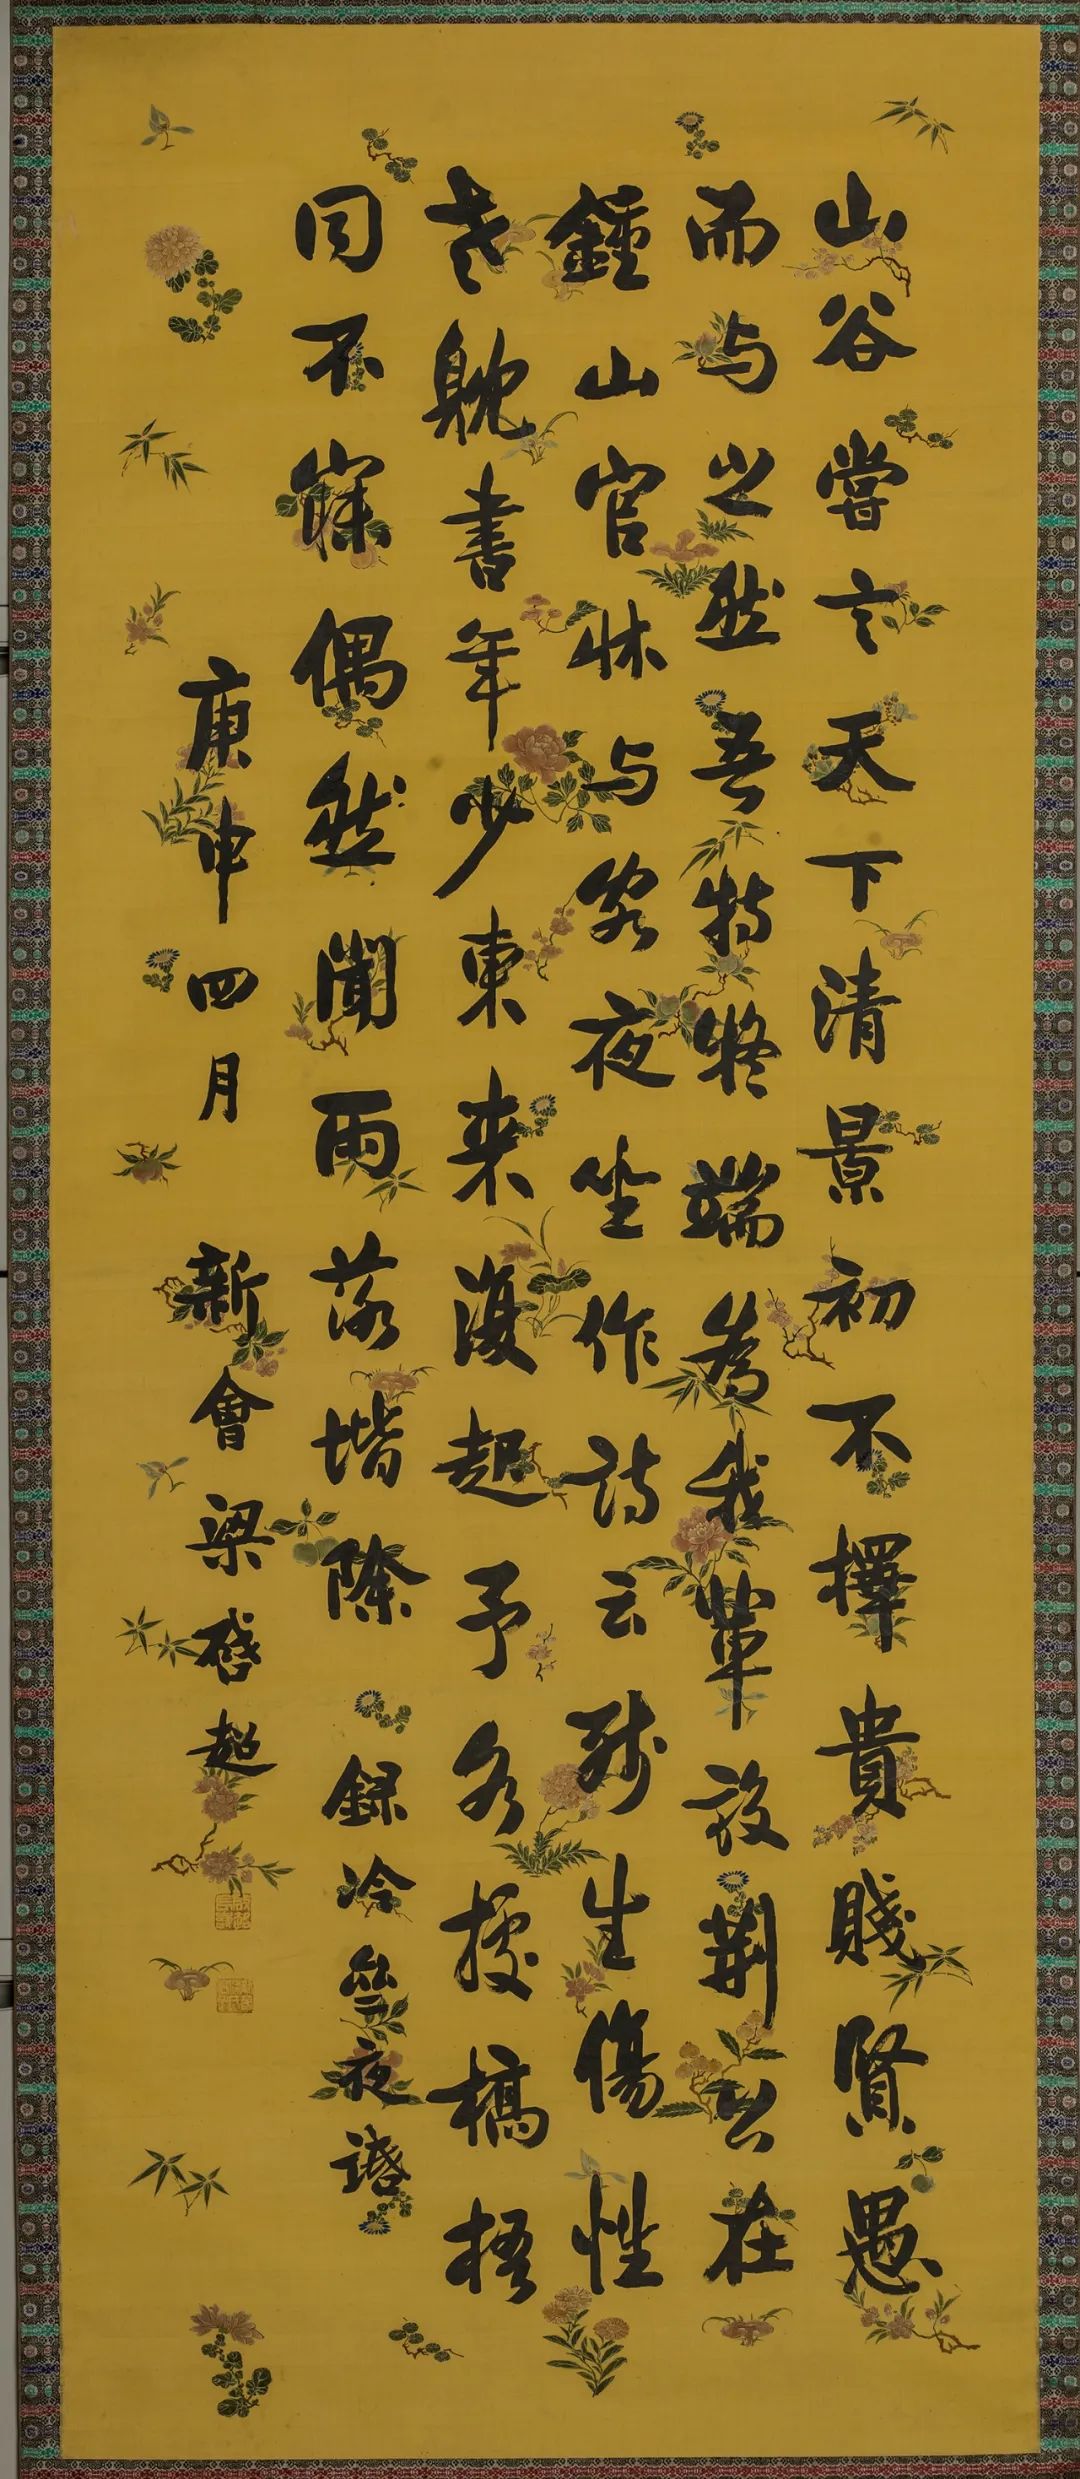 山谷嘗言天下清景初不擇貴賤賢愚
而与之然吾特疑端為我輩設荆公在
鍾山官休与客夜坐作詩云殘生傷性
老耽書年少東来復起予各據槁梧
同不寐偶然聞雨落堦除 録冷齋夜話
庚申四月 新會梁啓超